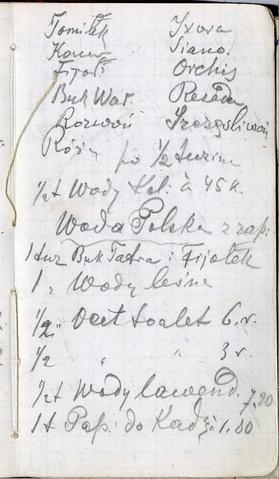 Tomilek Ixora
Kaun Siano.
Fijoł Orchis
Buk War. Reseda
Konwoń
Róża po ½ tuzina
½ t Wody Kol. à 45 k.
Woda Polska z zap:
1 tuz Buk Tatra i Fijołek
1 " Wody leśne
½ " Ocet toalet 6.r.
½ " " 3 r.
½ t Wody lawend. 7,20
1 t Pap. do Kadz: 1.80